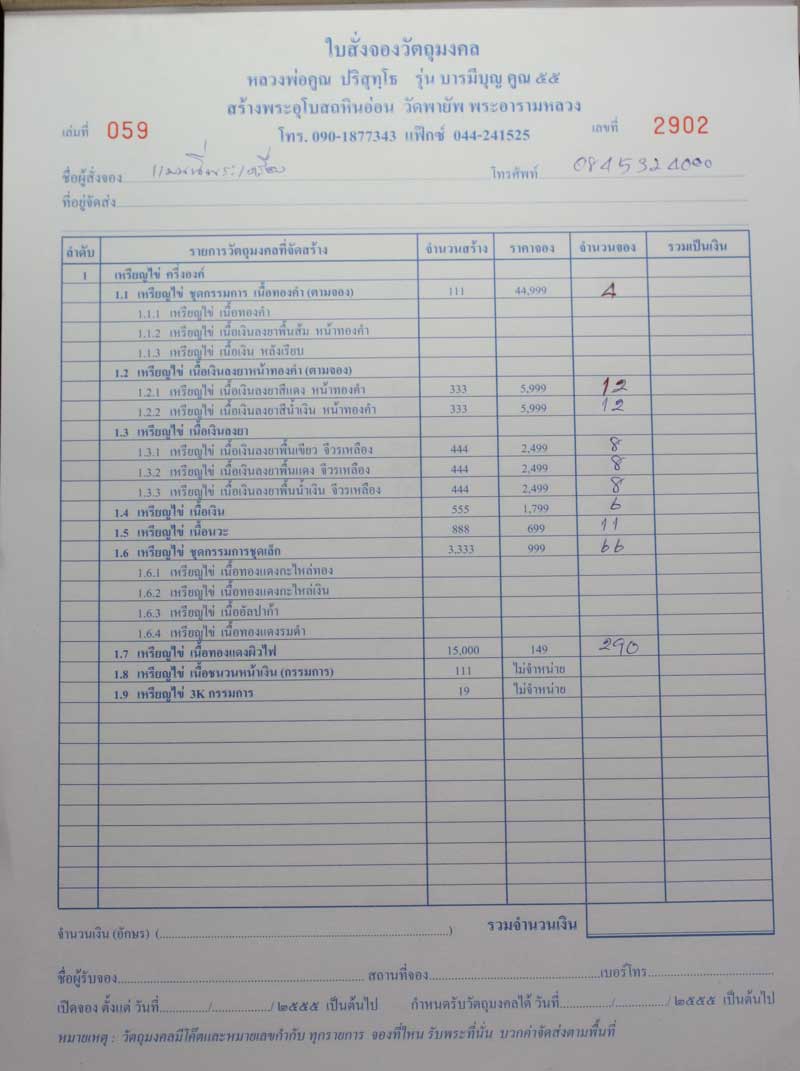 ใบสั่งจองวัตถุมงคล
หลวงพ่อคูณ ปริสุทฺโธ รุ่น บารมีบุญ คูณ ๕๕
สร้างพระอุโบสถหินอ่อน วัดพายัพ พระอารามหลวง
เล่มที่ 059 โทร. 090-1877343 แฟ๊กซ์ 044-241525 เลขที่ 2902
ชื่อผู้สั่งจอง โทรศัพท์
ที่อยู่จัดส่ง
ลำดับ รายการวัตถุมงคลที่จัดสร้าง จำนวนสร้าง ราคาจอง จำนวนจอง รวมเป็นเงิน
1 เหรียญไข่ ครึ่งองค์
1.1 เหรียญไข่ ชุดกรรมการ เนื้อทองคำ (ตามจอง) 111 44,999 4
1.1.1 เหรียญไข่ เนื้อทองคำ
1.1.2 เหรียญไข่ เนื้อเงินลงยาพื้นส้ม หน้าทองคำ
1.1.3 เหรียญไข่ เนื้อเงิน หลังเรียบ
1.2 เหรียญไข่ เนื้อเงินลงยาหน้าทองคำ (ตามจอง)
1.2.1 เหรียญไข่ เนื้อเงินลงยาสีแดง หน้าทองคำ 333 5,999 12
1.2.2 เหรียญไข่ เนื้อเงินลงยาสีน้ำเงิน หน้าทองคำ 333 5,999 12
1.3 เหรียญไข่ เนื้อเงินลงยา
1.3.1 เหรียญไข่ เนื้อเงินลงยาพื้นเขียว จีวรเหลือง 444 2,499 8
1.3.2 เหรียญไข่ เนื้อเงินลงยาพื้นแดง จีวรเหลือง 444 2,499 8
1.3.3 เหรียญไข่ เนื้อเงินลงยาพื้นน้ำเงิน จีวรเหลือง 444 2,499 8
1.4 เหรียญไข่ เนื้อเงิน 555 1,799 6
1.5 เหรียญไข่ เนื้อนวะ 888 699 11
1.6 เหรียญไข่ ชุดกรรมการชุดเล็ก 3,333 999 66
1.6.1 เหรียญไข่ เนื้อทองแดงกะไหล่ทอง
1.6.2 เหรียญไข่ เนื้อทองแดงกะไหล่เงิน
1.6.3 เหรียญไข่ เนื้ออัลปาก้า
1.6.4 เหรียญไข่ เนื้อทองแดงรมดำ
1.7 เหรียญไข่ เนื้อทองแดงผิวไฟ 15,000 149 290
1.8 เหรียญไข่ เนื้อชนวนหน้าเงิน (กรรมการ) 111 ไม่จำหน่าย
1.9 เหรียญไข่ 3K กรรมการ 19 ไม่จำหน่าย
จำนวนเงิน (อักษร) (..........) รวมจำนวนเงิน
ชื่อผู้รับจอง.......... สถานที่จอง..........เบอร์โทร..........
เปิดจอง ตั้งแต่ วันที่........../........../๒๕๕๕ เป็นต้นไป กำหนดรับวัตถุมงคลได้ วันที่........../........../๒๕๕๕ เป็นต้นไป
หมายเหตุ : วัตถุมงคลมีโค๊ตและหมายเลขกำกับ ทุกรายการ จองที่ไหน รับพระที่นั่น บวกค่าจัดส่งตามพื้นที่